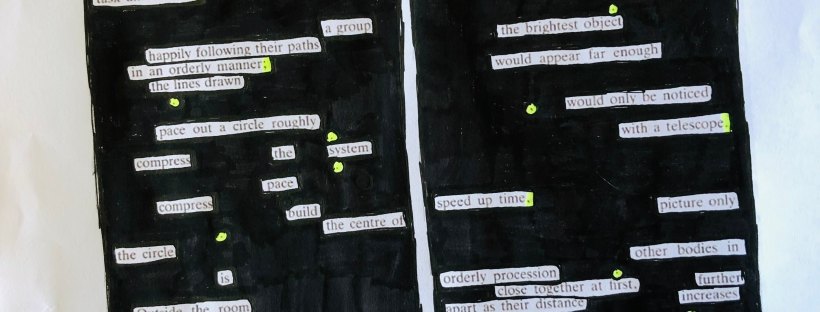 a group
happily following their paths
in an orderly manner;
the lines drawn
pace out a circle roughly
compress the system
pace
compress build
the centre of
the circle
is
Outside the room
the brightest object
would appear far enough
would only be noticed
with a telescope.
speed up time. picture only
other bodies in
orderly procession further
close together at first, increases
apart as their distance